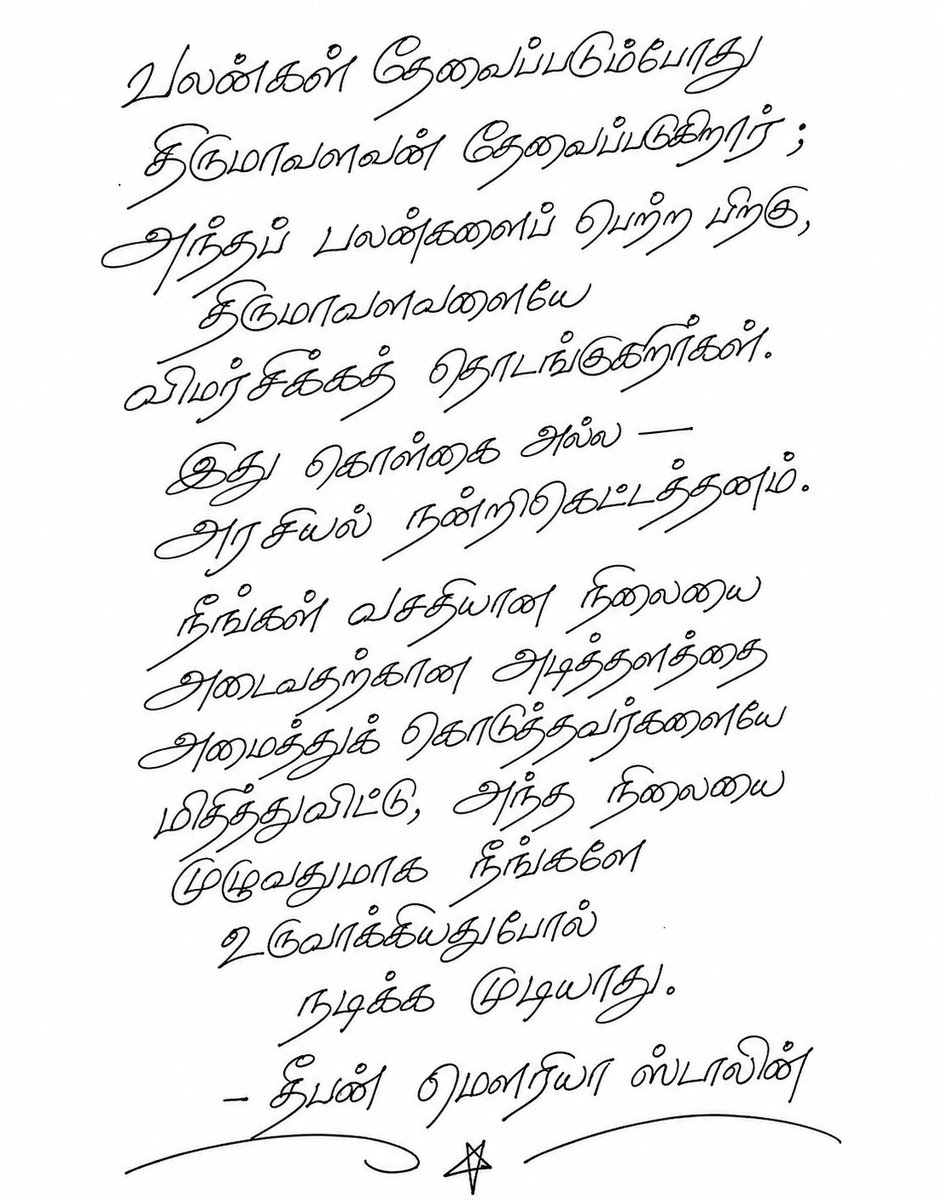 பலன்கள் தேவைப்படும்போது
திருமாவளவன் தேவைப்படுகிறார் ;
அந்தப் பலன்களைப் பெற்ற பிறகு,
திருமாவளவனையே
விமர்சிக்கத் தொடங்குகிறீர்கள்.
இது கொள்கை அல்ல —
அரசியல் நன்றிகெட்டத்தனம்.
நீங்கள் வசதியான நிலையை
அடைவதற்கான அடித்தளத்தை
அமைத்துக் கொடுத்தவர்களையே
மிதித்துவிட்டு, அந்த நிலையை
முழுவதுமாக நீங்களே
உருவாக்கியதுபோல்
நடிக்க முடியாது.
– தீபன் மௌரியா ஸ்டாலின்